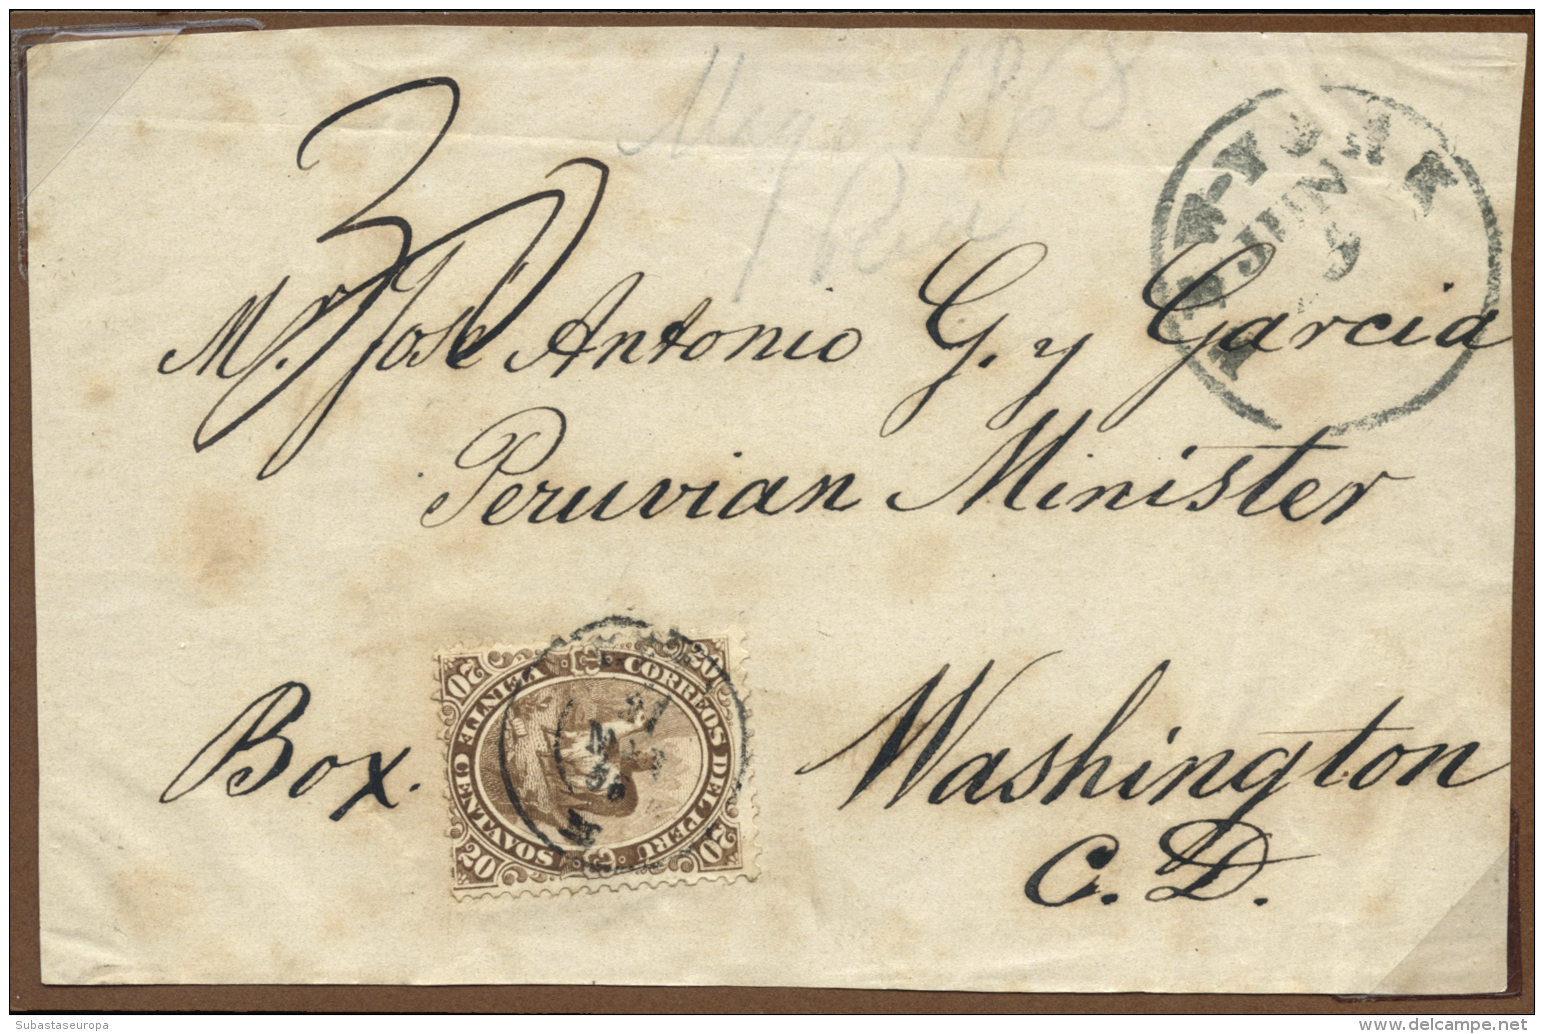 Mayo 1868
N. YORK
JUN
5
30
Mr. Jose Antonio G. y Garcia
Peruvian Minister
Box.
Washington
C. D.
CORREOS DEL PERU
VEINTE CENTAVOS
20 20 20 20
Subastaseuropa
www.delcampe.net